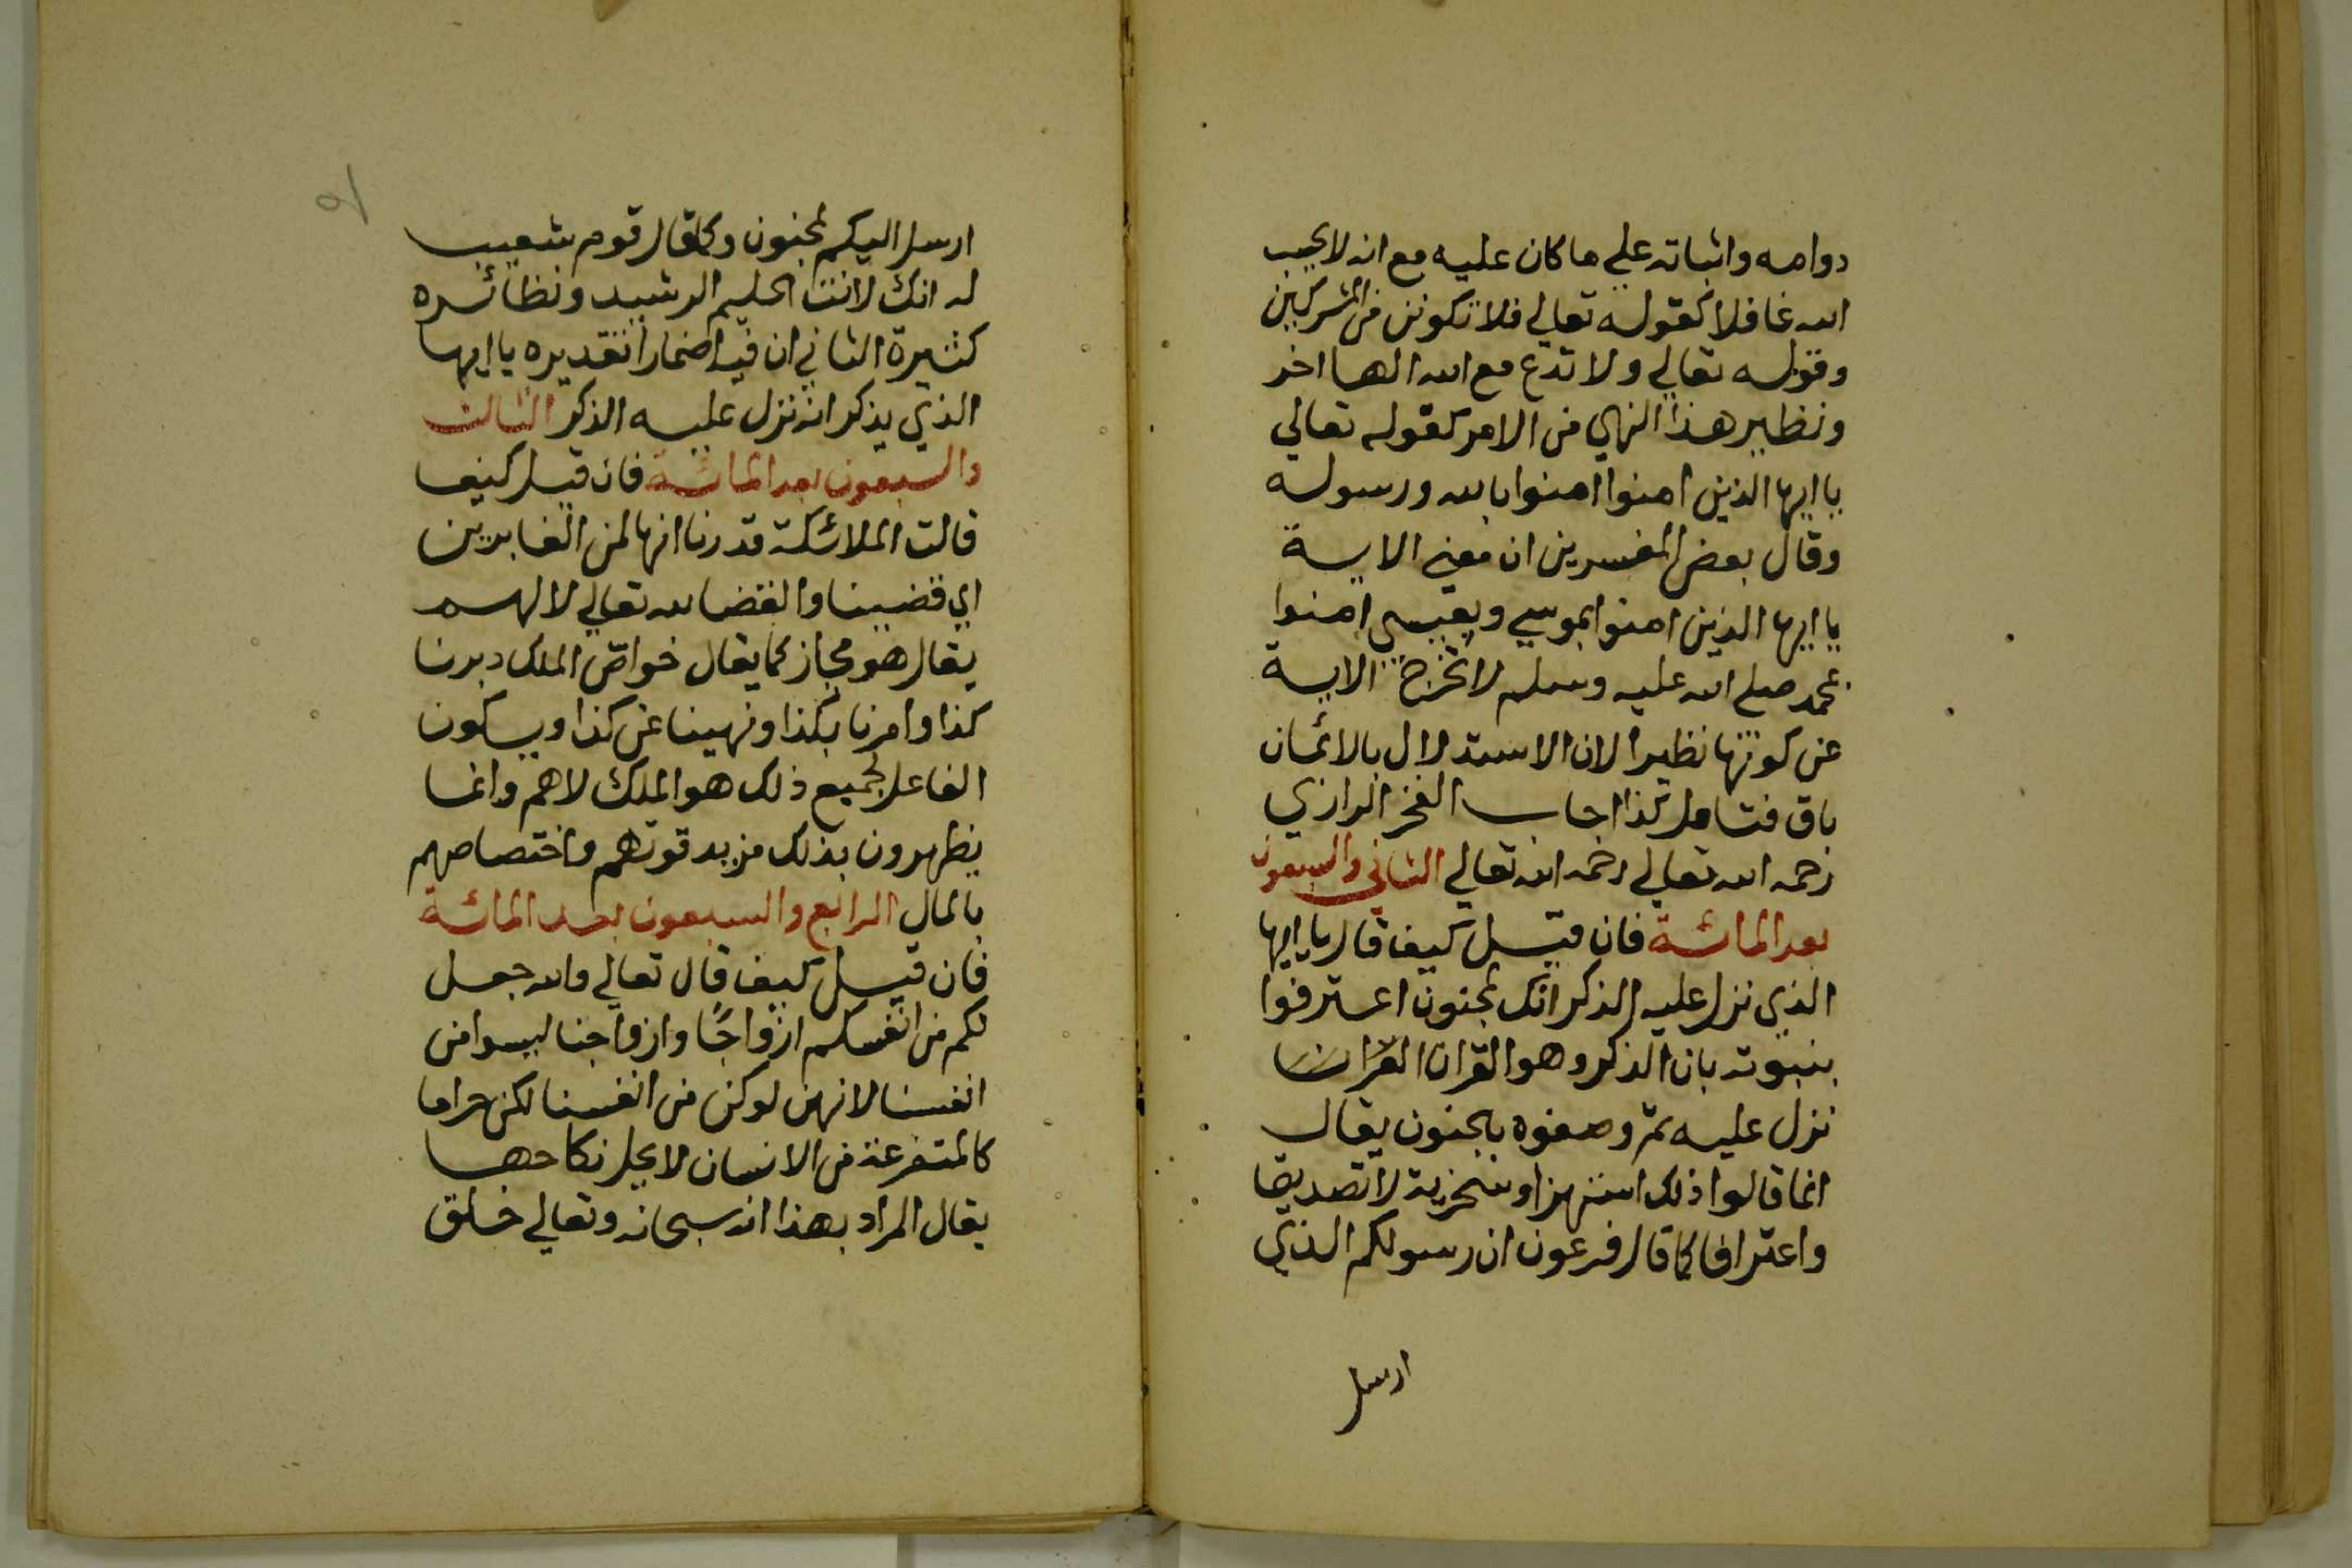 دوامه واثباته علي ما كان عليه مع انه لا يحب
الله غافلا كقوله تعالي فلا تكونن من المشركين
وقوله تعالي ولا تدع مع الله الها اخر
ونظير هذا النهي من الامر كقوله تعالي
يا ايها الذين امنوا امنوا بالله ورسوله
وقال بعض المفسرين ان معني الاية
يا ايها الذين امنوا بموسي وبعيسي امنوا
بمحمد صلي الله عليه وسلم لا تخرج الاية
عن كونها نظيرا لان الاستدلال بالائمان
باق فتامل كذا اجاب الفخر الرازي
رحمه الله تعالي رحمه الله تعالي الثاني والسبعون
بعد المائة فان قيل كيف قال يا ايها
الذي نزل عليه الذكر انك لمجنون اعترفوا
بنبوته بان الذكر وهو القران القران
نزل عليه ثم وصفوه بالجنون يقال
انما قالوا ذلك استهزا وسخرية لا تصديقا
واعترافا كما قال فرعون ان رسولكم الذي
ارسل
ارسل اليكم لمجنون وكما قال قوم شعيب
له انك لانت الحليم الرشيد ونظائره
كثيرة الثاني ان فيه اضمارا تقديره يا ايها
الذي يذكر انه نزل عليه الذكر الثالث
والسبعون بعد المائة فان قيل كيف
قالت الملائكة قدرنا انها لمن الغابرين
اي قضينا والقضا لله تعالي لا لهم
يقال هو مجاز كما يقال خواص الملك دبرنا
كذا وامرنا بكذا ونهينا عن كذا ويكون
الفاعل لجميع ذلك هو الملك لا هم وانما
يظهرون بذلك مزيد قوتهم واختصاصهم
بالمال الرابع والسبعون بعد المائة
فان قيل كيف قال تعالي والله جعل
لكم من انفسكم ازواجًا وازواجنا ليسوا من
انفسنا لانهن لو كن من انفسنا لكن حراما
كالمتفرعة من الانسان لا يحل نكاحها
يقال المراد بهذا انه سبحانه وتعالي خلق